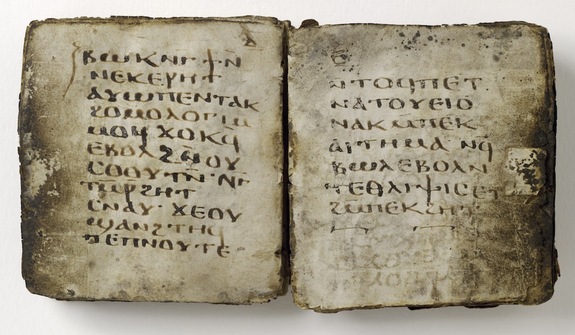 ⲃⲱⲕⲛⲅϯⲛ̄
ⲛⲉⲕⲉⲣⲏⲧ
ⲁⲩⲱⲡⲉⲛⲧⲁⲕ
ϩⲟⲙⲟⲗⲟⲅⲓⲁ
ⲙⲙⲟϥ ϫⲟⲕϥ
ⲉⲃⲟⲗ ϩⲛⲟⲩ
ⲥⲟⲟⲩⲧⲛ ⲛⲅ
ⲧⲙⲣϩⲏⲧ
ⲥⲛⲁⲩ ϫⲉⲟⲩ
ϣⲁⲛϩⲧⲏϥ
ⲡⲉⲡⲛⲟⲩⲧⲉ
ⲛⲧⲟϥⲡⲉⲧ
ⲛⲁⲧⲟⲩⲉⲓⲟ
ⲛⲁⲕⲙⲡⲉⲕ
ⲁⲓⲧⲏⲙⲁ ⲛϥ
ⲃⲱⲗⲉⲃⲟⲗⲛ
ⲧⲉⲑⲗⲓⲯⲓⲥⲉⲧ
ϩⲙⲡⲉⲕϩⲏⲧ